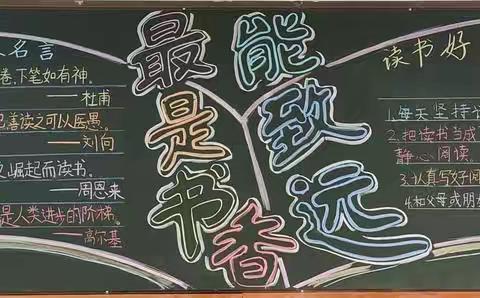 人名言
卷,下笔如有神。
——杜甫
善读之可以医愚。
——刘向
之崛起而读书。
——周恩来
是人类进步的阶梯。
——高尔基
最是书香
能致远
读书好
1.每天坚持
2.把读书当成
静心阅读。
3.认真写好阅
4.和父母或朋